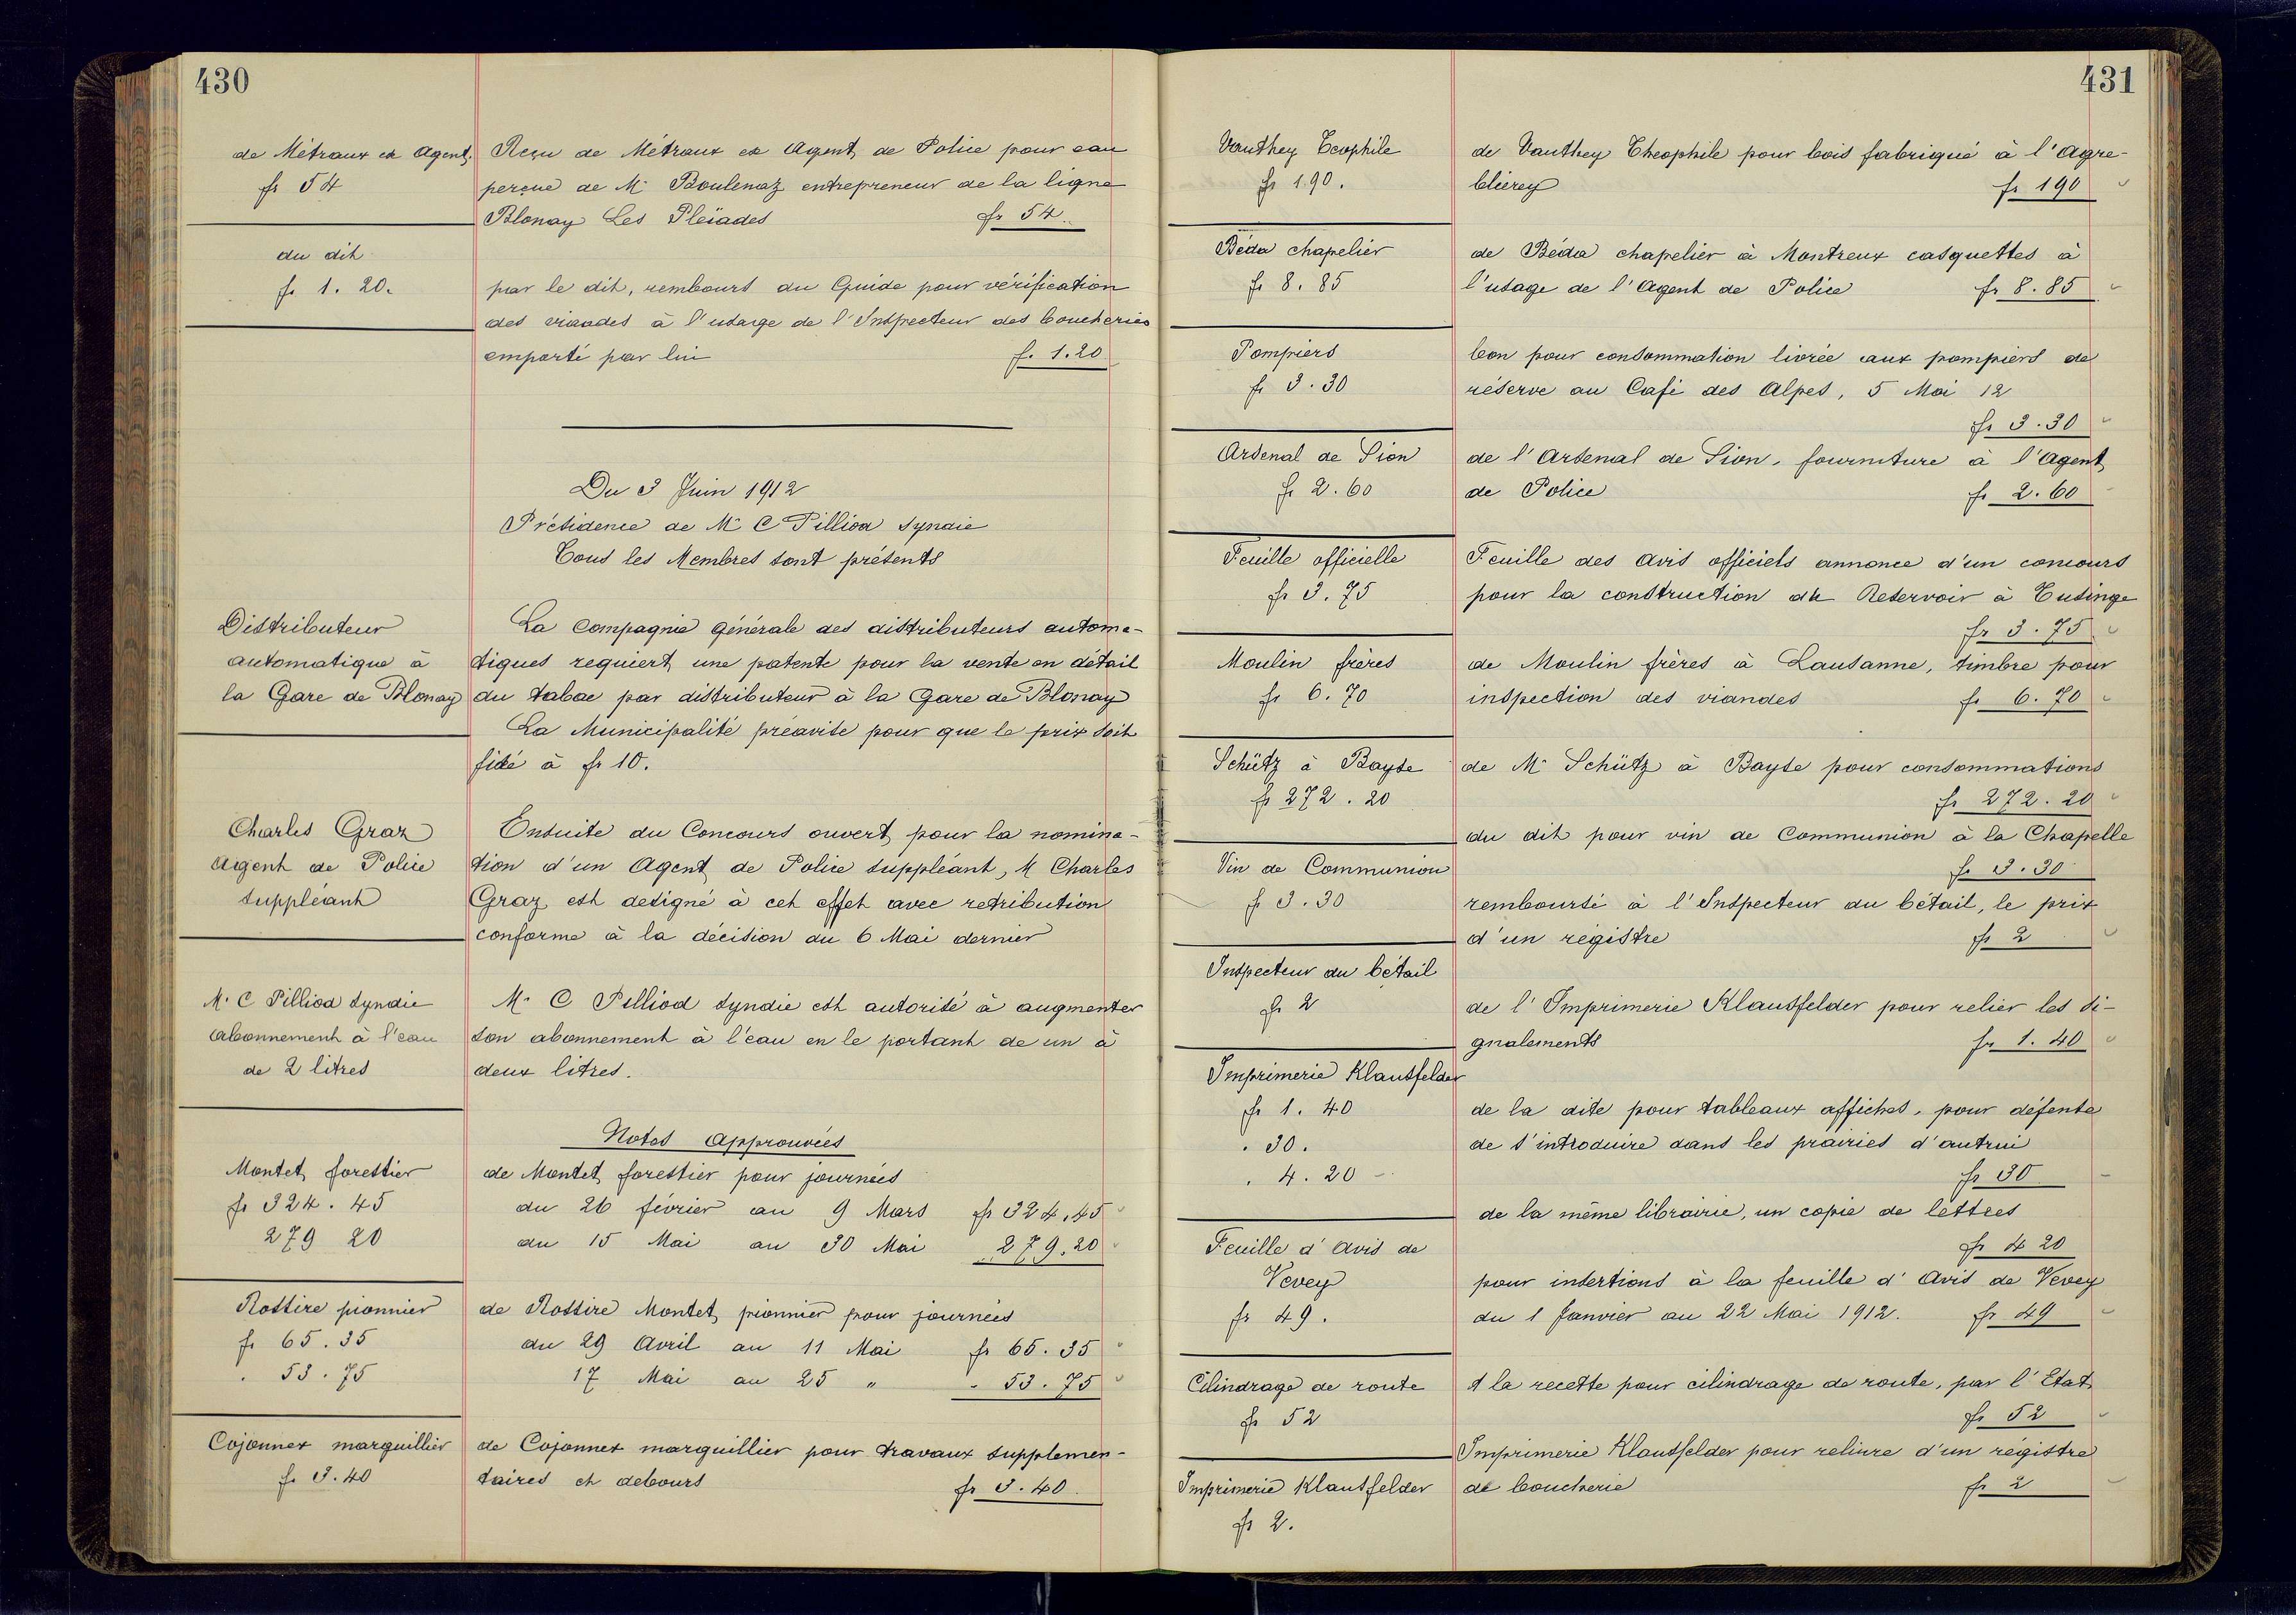 430
de Métraux ex Agent.
fr 54
Reçu de Métraux ex Agent de Police pour eau
perçue de Mr Boulenaz entrepreneur de la ligne
Blonay Les Pleïades fr 54.
du dit
fr 1. 20.
par le dit, rembours du Guide pour vérification
des viandes à l'usage de l'Inspecteur des boucheries
emporté par lui f. 1.20
Du 3 Juin 1912
Présidence de Mr C Pilliod Syndic
Tous les Membres sont présents
Distributeur
automatique à
la Gare de Blonay
La Compagnie générale des distributeurs automa-
tiques requiert une patente pour la vente en détail
du tabac par distributeur à la Gare de Blonay
La Municipalité préavise pour que le prix soit
fixé à fr 10.
Charles Graz
Agent de Police
suppléant
Ensuite du Concours ouvert pour la nomina-
tion d'un Agent de Police suppléant, M Charles
Graz est designé à cet effet avec retribution
conforme à la décision du 6 Mai dernier
Mr C Pilliod syndic
abonnement à l'eau
de 2 litres
Mr C Pilliod syndic est autorisé à augmenter
son abonnement à l'eau en le portant de un à
deux litres.
Notes Approuvées
Montet forestier
fr 324. 45
279 20
de Montet forestier pour journées
du 26 février au 9 Mars fr 324,45
du 15 Mai au 30 Mai 279.20
Rossire pionnier
fr 65. 35
. 53. 75
de Rossire Montet pionnier pour journées
du 29 Avril au 11 Mai fr 65. 35
17 Mai au 25 " . 53. 75
Cojonnex marguillier
fr 3.40
de Cojonnex marguillier pour travaux supplemen-
taires et debours fr 3. 40.
431
Vauthey Teophile
fr 190.
de Vauthey Theophile pour bois fabriqué à l'Agre-
blierey fr 190
Béda chapelier
fr 8. 85
de Béda chapelier à Montreux casquettes à
l'usage de l'Agent de Police fr 8. 85
Pompiers
fr 3. 30
bon pour consommation livrée aux pompiers de
réserve au Café des Alpes, 5 Mai 12
fr 3. 30
Arsenal de Sion
fr 2. 60
de l'Arsenal de Sion, fourniture à l'Agent
de Police fr 2. 60
Feuille officielle
fr 3. 75
Feuille des Avis officiels annonce d'un concours
pour la construction du Reservoir à Tusinge
fr 3. 75
Moulin frères
fr 6. 70
de Moulin frères à Lausanne, timbre pour
inspection des viandes fr 6. 70
Schütz à Bayse
fr 272. 20
de Mr Schütz à Bayse pour consommations
fr 272. 20
Vin de Communion
fr 3. 30
du dit pour vin de Communion à la Chapelle
fr 3. 30
Inspecteur du bétail
fr 2
remboursé à l'Inspecteur du bétail, le prix
d'un régistre fr 2
Imprimerie Klausfelder
fr 1. 40
. 30.
. 4. 20
de l'Imprimerie Klausfelder pour relier les si-
gnalements fr 1. 40
de la dite pour tableaux affiches, pour défense
de s'introduire dans les prairies d'autrui
fr 30
de la même librairie, un copie de lettres
fr 4 20
Feuille d'Avis de
Vevey
fr 49.
pour insertions à la feuille d'Avis de Vevey
du 1 Janvier au 22 Mai 1912. fr 49
Cilindrage de route
fr 52
A la recette pour cilindrage de route, par l'Etat
fr 52
Imprimerie Klausfelder
fr 2.
Imprimerie Klausfelder pour reliure d'un régistre
de boucherie fr 2